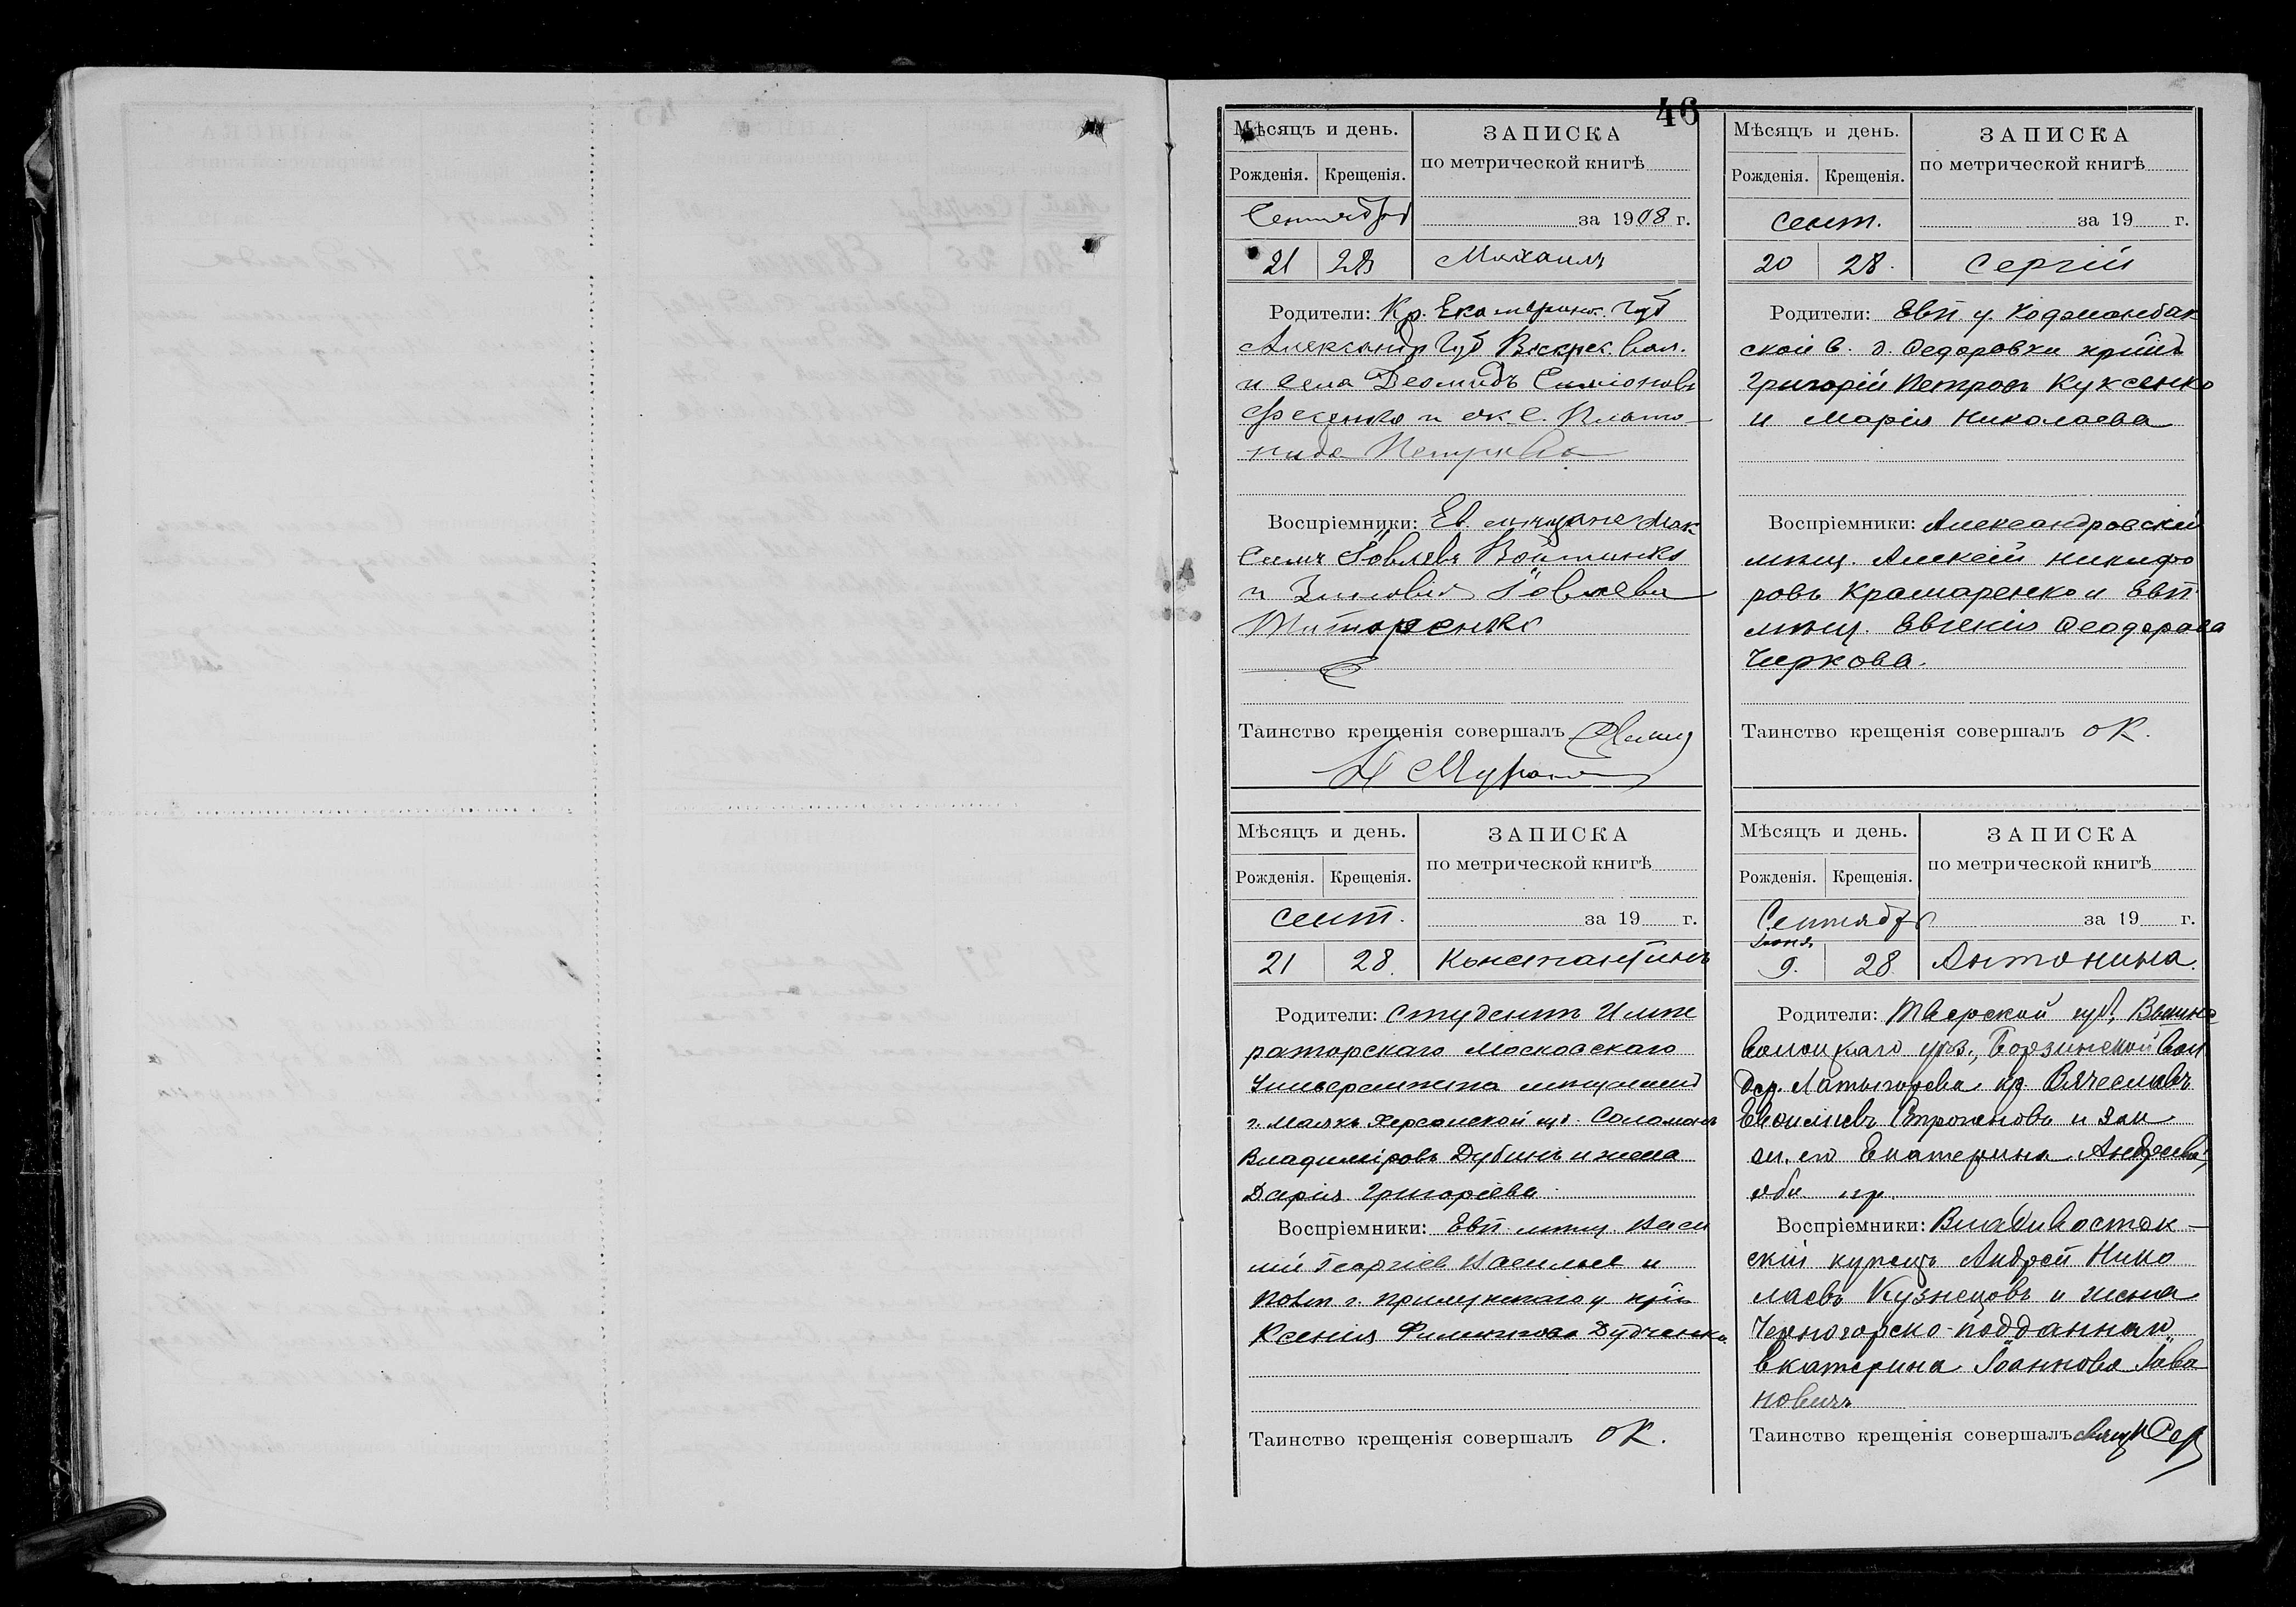 46
Мѣсяцъ и день.
ЗАПИСКА
по метрической книгѣ
Рожденія. Крещенія.
Сентябрь
за 1908 г.
21 28 Михаилъ
Родители: Кр. Екатерин. губ
Александр губ Воскрес. вол.
и села Деомидъ Симіоновъ
и ж. е. Плато-
нида Петрова
Воспріемники: Ев. мѣщане Мак
симъ Іовлевъ Войтенко
и Зиновія Іовлева
Титаренко
Таинство крещенія совершалъ
Мѣсяцъ и день.
ЗАПИСКА
по метрической книгѣ
Рожденія. Крещенія.
Сент.
за 19 г.
20 28. Сергій
Родители: Евп. у.
ской в. д. Федоровки кр-нъ
Григорій Петровъ Куксенко
и Марія Николаева
Воспріемники: Александровскій
мѣщ. Алексій Никифо
ровъ Крамаренко и Евп
мѣщ. Евгенія Феодорова
Чиркова.
Таинство крещенія совершалъ оК.
Мѣсяцъ и день.
ЗАПИСКА
по метрической книгѣ
Рожденія. Крещенія.
Сент.
за 19 г.
21 28. Константинъ
Родители: Студентъ Импе
раторскаго Московскаго
Университета мѣщанинъ
г. Маякъ Херсонской губ. Соломонъ
Владиміровъ Дубинъ и жена
Дарія Григоріева
Воспріемники: Евп. мѣщ. Васи
лій Георгіев Васильев и
Полт г. Прилукскаго у кр-ка
Ксенія Филиппова Дудченко.
Таинство крещенія совершалъ оК.
Мѣсяцъ и день.
ЗАПИСКА
по метрической книгѣ
Рожденія. Крещенія.
Сентябр
за 19 г.
Іюня
9. 28 Антонина.
Родители: Тверской губ, Вышне
волоцкаго уѣз., Борзинской вол
дер. Латыгорева кр. Вячеславъ
Василіевъ Строгановъ и зак
жи. его Екатерина Андреева,
оба пр.
Воспріемники: Владивосток-
скій купецъ Андрей Нико
лаевъ Кузнецовъ и жена
Черногорско-подданная
Екатерина Іоаннова Іова
новичъ
Таинство крещенія совершалъ свящ Н Сер